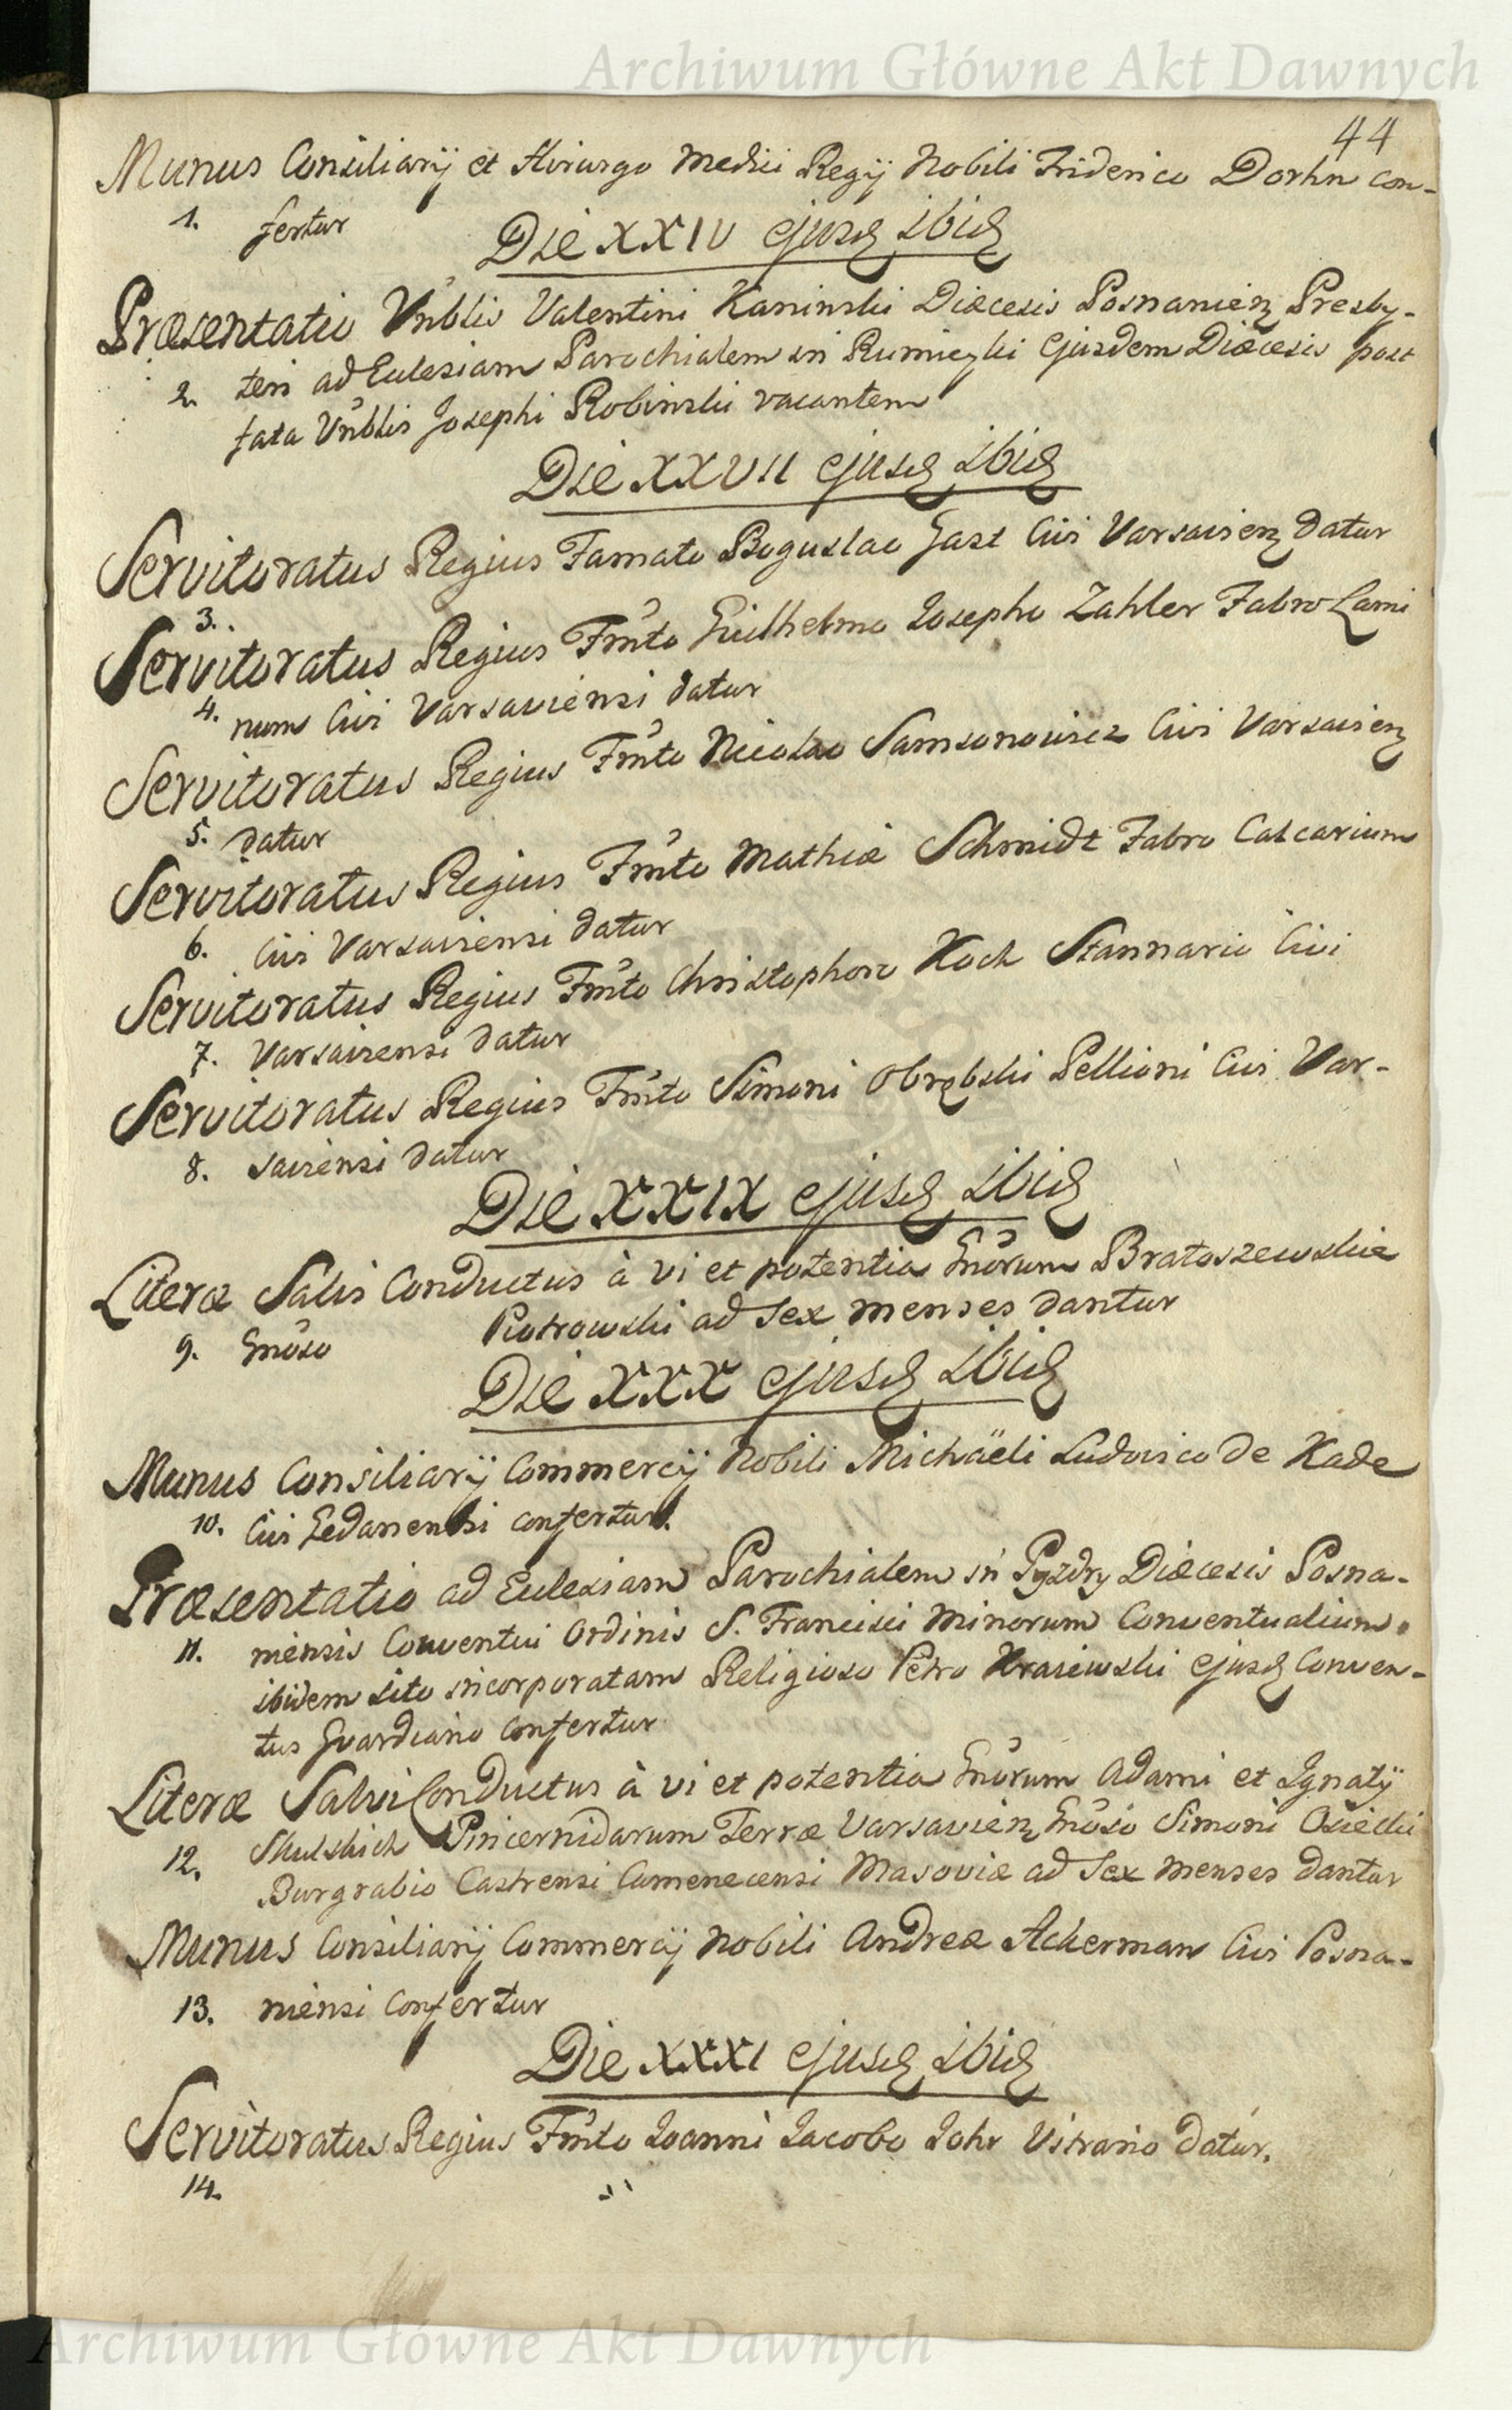 Archiwum Główne Akt Dawnych
44
Munus Consiliarij et Hirurgo Medici Regij Nobili Friderico Dorhn con-
1. fertur
Die XXIV ejusd ibid
Præsentatio Vnblis Valentini Kaninski Diæcesis Posnanien Presby-
2. teri ad Eclesiam Parochialem in Rumieyki Ejusdem Diæcesis post
fata Vnblis Josephi Robinski vacantem
Die XXVII ejusd ibid
Servitoratus Regius Famato Boguslao Gast Civi Varsavien datur
3.
Servitoratus Regius Fmto Guilhelmo Josepho Zahler Fabro Lami
4. num Civi Varsaviensi datur
Servitoratus Regius Fmto Nicolao Samsonowicz Civi Varsavien
5. datur
Servitoratus Regius Fmto Mathiæ Schmidt Fabro Calcarium
6. Civi Varsaviensi datur
Servitoratus Regius Fmto Christophoro Koch Stannario Civi
7. Varsaviensi datur
Servitoratus Regius Fmto Simoni Obrębski Pellioni Civi Var-
8. saviensi datur
Die XXIX ejusd ibid
Literæ Salvi Conductus à vi et potentia Gnorum Bratoszewskie
9. Gnoso Piotrowski ad Sex menses dantur
Die XXX ejusd ibid
Munus Consiliarij Commercij Nobili Michäeli Ludovico de Kade
10. Civi Gedanensi confertur.
Præsentatio ad Eclesiam Parochialem in Pyzdry Diæcesis Posna-
11. niensis Conventui Ordinis S. Francisci Minorum Conventualium
ibidem sito incorporatam Religioso Petro Krasiewski ejusd Conven-
tus Gvardiano Confertur
Literæ Salvi Conductus à vi et potentia Gnorum Adami et Ignatij
12. Skulskich Pincernidarum Terræ Varsavien Gnoso Simoni Osiecki
Burgrabio Castrensi Camenecensi Masoviæ ad Sex menses dantur
Munus Consiliarij Commercij Nobili Andreæ Ackerman Civi Posna-
13. niensi Confertur
Die XXXI ejusd ibid
Servitoratus Regius Fmto Joanni Jacobo Johr Vitrario datur.
14.
Archiwum Główne Akt Dawnych